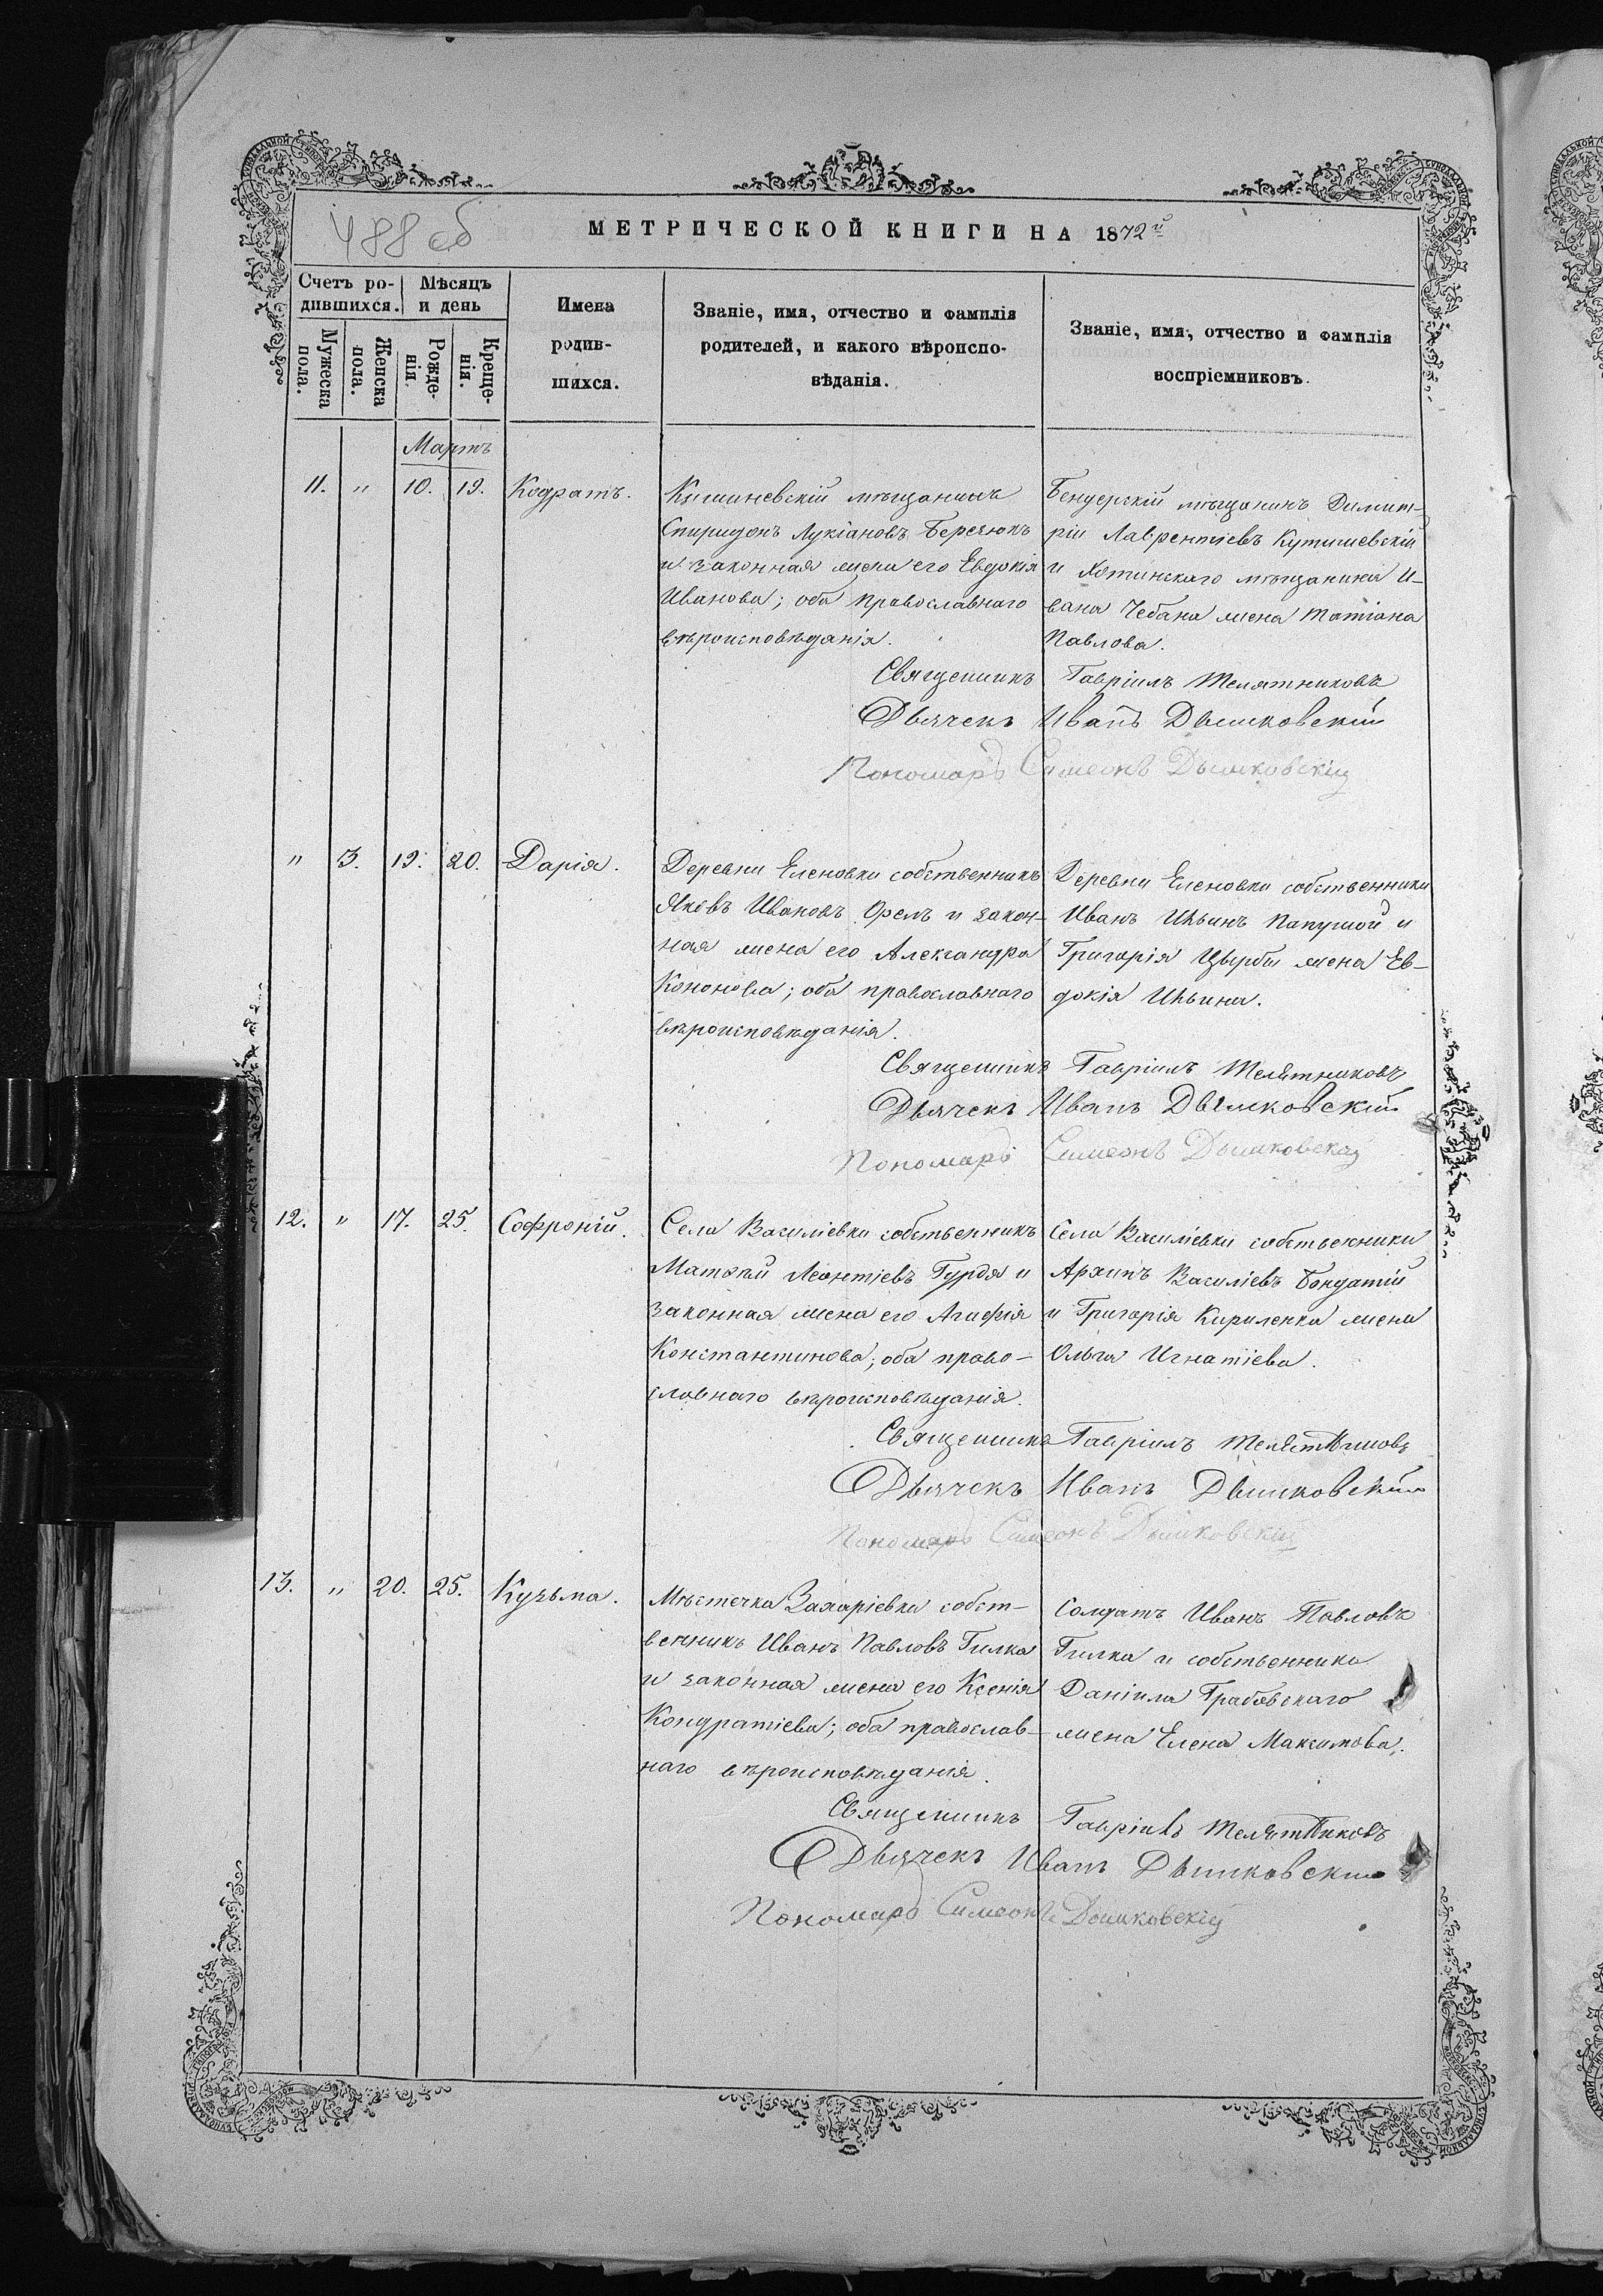 488 об
МЕТРИЧЕСКОЙ КНИГИ НА 1872й
Счетъ ро-
дившихся.
Мѣсяцъ
и день
Мужеска
пола.
Женска
пола.
Рожде-
нія.
Креще-
нія.
Имена
родив-
шихся.
Званіе, имя, отчество и фамилія
родителей, и какого вѣроиспо-
вѣданія.
Званіе, имя, отчество и фамилія
воспріемниковъ.
Мартъ
11. " 10. 19. Кодратъ.
Кишиневскій мѣщанинъ
Спиридонъ Лукіановъ Беречюкъ
и законная жена его Евдокія
Иванова; оба православнаго
вѣроисповѣданія.
Бендерскій мѣщанинъ Димит-
рій Лаврентіевъ Кутишевскій
и Хотинскаго мѣщанина И-
вана Чебана жена Татіана
Павлова.
Священникъ Гавріилъ Телятниковъ
Дьячекъ Иванъ Дышковскій
Пономарь Симеонъ Дышковскій
" 3. 19. 20. Дарія.
Деревни Еленовки собственникъ
Яковъ Ивановъ Орелъ и закон-
ная жена его Александра
Кононова; оба православнаго
вѣроисповѣданія.
Деревни Еленовки собственники
Иванъ Ильинъ Папушой и
Григорія Цырбы жена Ев-
докія Ильина.
Священникъ Гавріилъ Телятниковъ
Дьячекъ Иванъ Дышковскій
Пономарь Симеонъ Дышковскій
12. " 17. 25. Софроній.
Села Василіевки собственникъ
Матѳей Леонтіевъ Гурдя и
законная жена его Агафія
Константинова; оба право-
славнаго вѣроисповѣданія.
Села Василіевки собственники
Архипъ Василіевъ Бондатій
и Григорія Кириленка жена
Ольга Игнатіева.
Священникъ Гавріилъ Телятниковъ
Дьячекъ Иванъ Дышковскій
Пономарь Симеонъ Дышковскій
13. " 20. 25. Кузьма.
Мѣстечка Захаріевки собст-
венникъ Иванъ Павловъ Гилка
и законная жена его Ксенія
Кондратіева; оба православ-
наго вѣроисповѣданія.
Солдатъ Иванъ Павловъ
Гилка и собственника
Даніила Грабовскаго
жена Елена Максимова.
Священникъ Гавріилъ Телятниковъ
Дьячекъ Иванъ Дышковскій
Пономарь Симеонъ Дышковскій